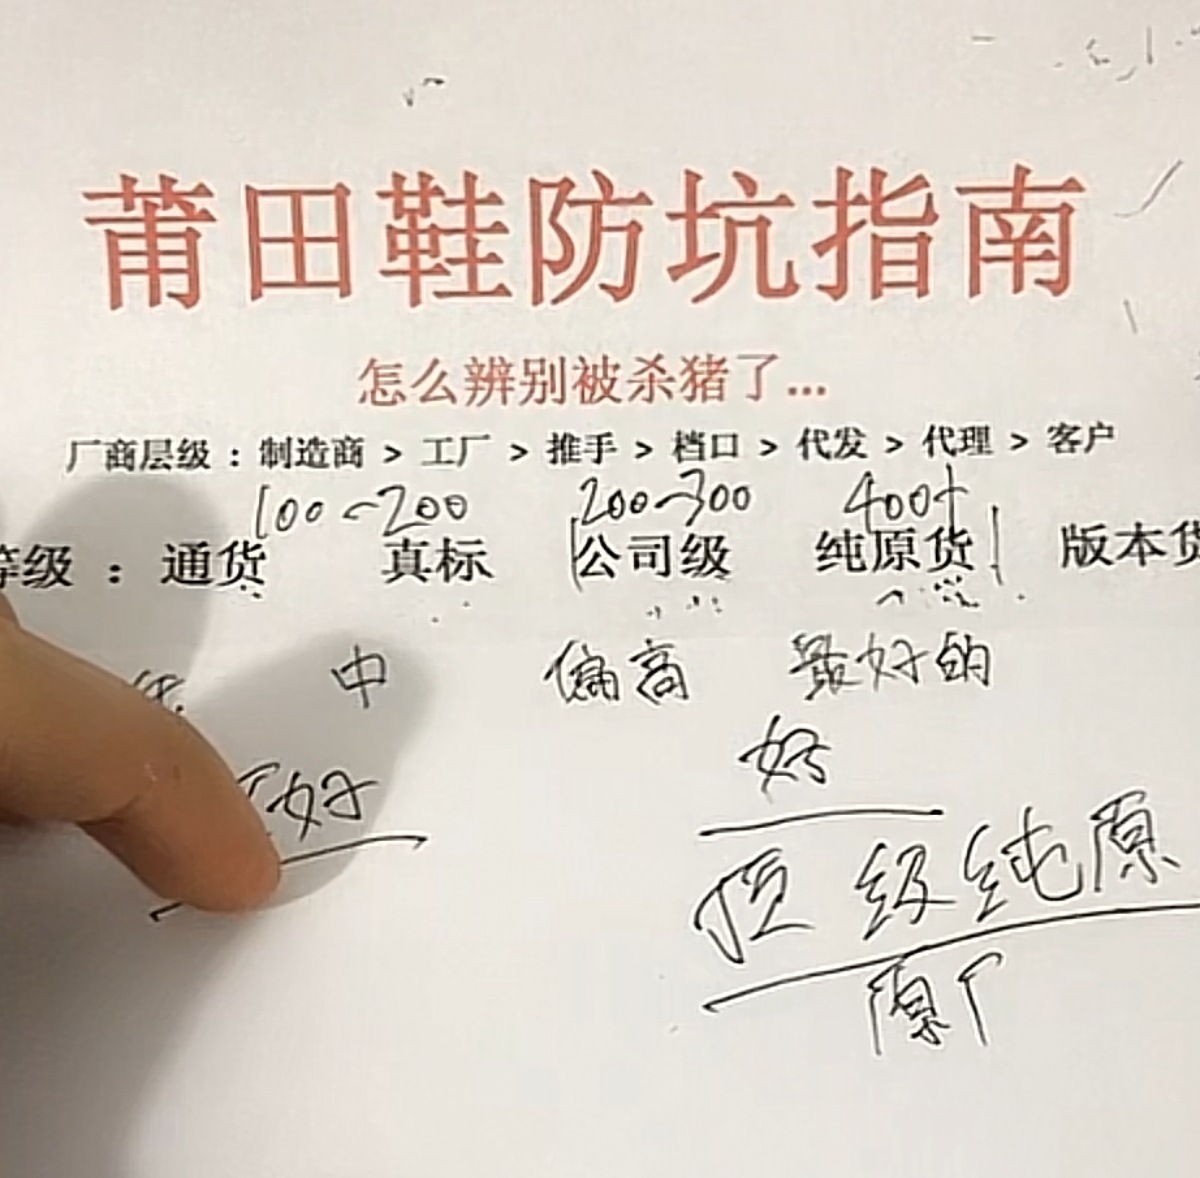 莆田鞋防坑指南
怎么辨别被杀猪了...
厂商层级：制造商 > 工厂 > 推手 > 档口 > 代发 > 代理 > 客户
100~200 200~300 400+
等级：通货 真标 公司级 纯原货 版本货
中 偏高 最好的
好 好
顶级纯原
原厂